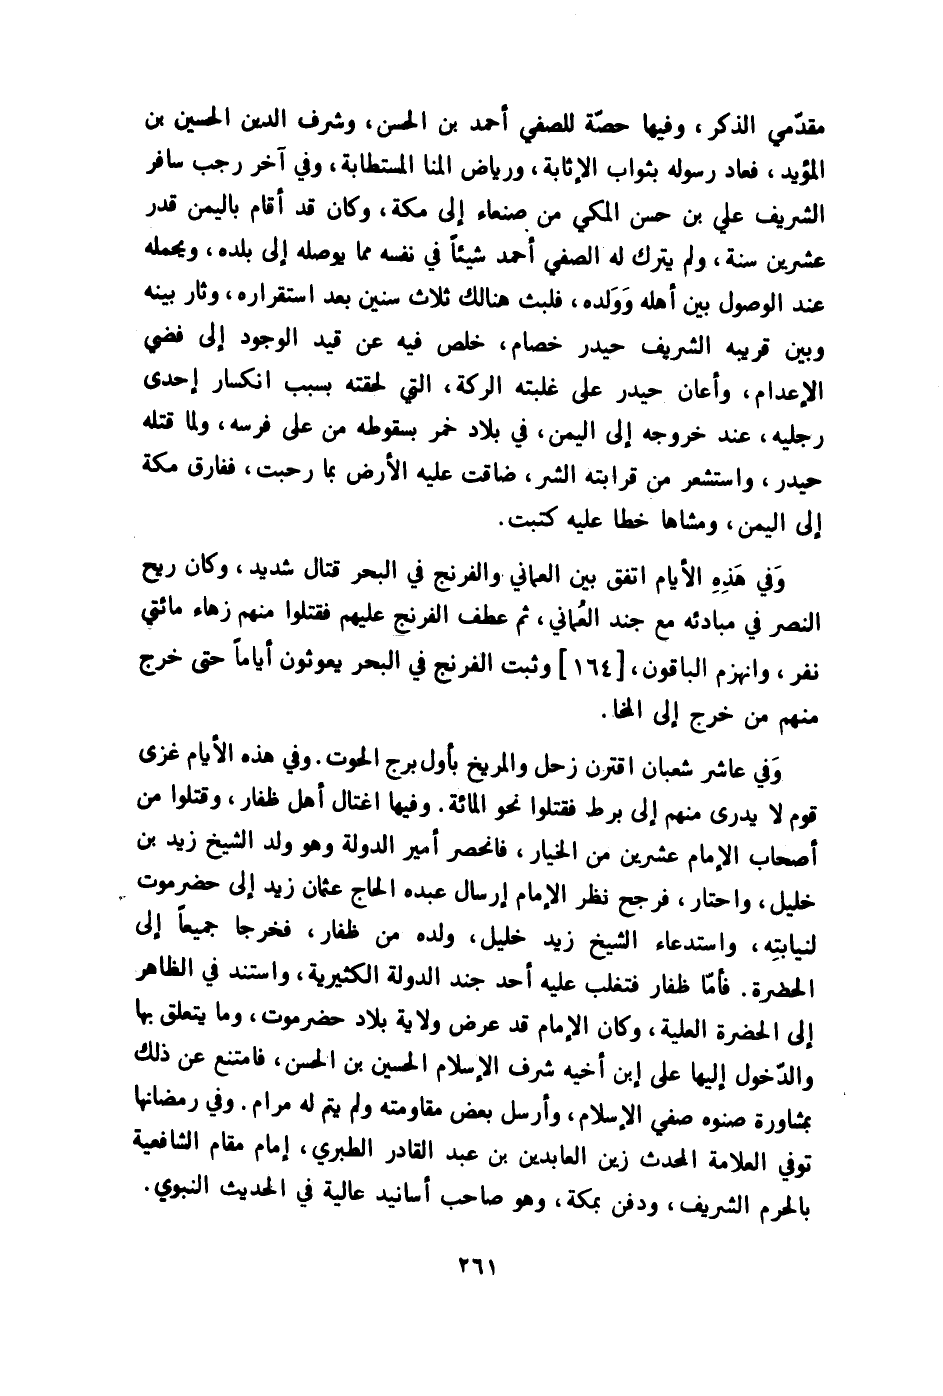 مقدّمي الذكر، وفيها حصّة للصفي أحمد بن الحسن، وشرف الدين الحسين بن
المؤيد، فعاد رسوله بثواب الإثابة، ورياض المنا المستطابة، وفي آخر رجب سافر
الشريف علي بن حسن المكي من صنعاء إلى مكة، وكان قد أقام باليمن قدر
عشرين سنة، ولم يترك له الصفي أحمد شيئاً في نفسه مما يوصله إلى بلده، ويحمله
عند الوصول بين أهله وَوَلده، فلبث هنالك ثلاث سنين بعد استقراره، وثار بينه
وبين قريبه الشريف حيدر خصام، خلص فيه عن قيد الوجود إلى فضي
الإعدام، وأعان حيدر على غلبته الركة، التي لحقته بسبب انكسار إحدى
رجليه، عند خروجه إلى اليمن، في بلاد خمر بسقوطه من على فرسه، ولما قتله
حيدر، واستشعر من قرابته الشر، ضاقت عليه الأرض بما رحبت، ففارق مكة
إلى اليمن، ومشاها خطا عليه كتبت.
وَفي هَذِهِ الأيام اتفق بين العماني والفرنج في البحر قتال شديد، وكان ريح
النصر في مبادئه مع جند العُماني، ثم عطف الفرنج عليهم فقتلوا منهم زهاء مائتي
نفر، وانهزم الباقون، [١٦٤] وثبت الفرنج في البحر يعوثون أياماً حتى خرج
منهم من خرج إلى المخا.
وَفي عاشر شعبان اقترن زحل والمريخ بأول برج الحوت. وفي هذه الأيام غزى
قوم لا يدرى منهم إلى برط فقتلوا نحو المائة. وفيها اغتال أهل ظفار، وقتلوا من
أصحاب الإمام عشرين من الخيار، فانحصر أمير الدولة وهو ولد الشيخ زيد بن
خليل، واحتار، فرجح نظر الإمام إرسال عبده الحاج عثمان زيد إلى حضرموت
لنيابتِه، واستدعاء الشيخ زيد خليل، ولده من ظفار، فخرجا جميعاً إلى
الحضرة. فأمّا ظفار فتغلب عليه أحد جند الدولة الكثيرية، واستند في الظاهر
إلى الحضرة العلية، وكان الإمام قد عرض ولاية بلاد حضرموت، وما يتعلق بها
والدّخول إليها على إبن أخيه شرف الإسلام الحسين بن الحسن، فامتنع عن ذلك
بمشاورة صنوه صفي الإسلام، وأرسل بعض مقاومته ولم يتم له مرام. وفي رمضانها
توفي العلامة المحدث زين العابدين بن عبد القادر الطبري، إمام مقام الشافعية
بالحرم الشريف، ودفن بمكة، وهو صاحب أسانيد عالية في الحديث النبوي.
٢٦١